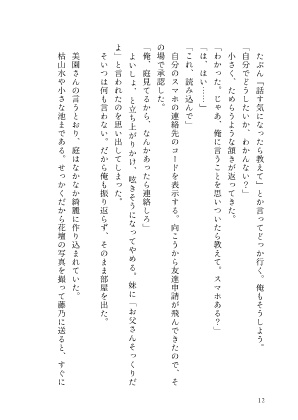 たぶん『話す気になったら教えて』とか言ってどっか行く。俺もそうしよう。
「自分でどうしたいか、わかんない？」
小さく、ためらうような頷きが返ってきた。
「わかった。じゃあ、俺に言うことを思いついたら教えて。スマホある？」
「は、はい……」
「これ、読み込んで」
自分のスマホの連絡先のコードを表示する。向こうから友達申請が飛んできたので、そ
の場で承認した。
「俺、庭見てるから、なんかあったら連絡しろ」
よいしょ、と立ち上がりかけ、呟きそうになってやめる。妹に「お父さんそっくりだ
よ」と言われたのを思い出してしまった。
そいつは何も言わない。だから俺も振り返らず、そのまま部屋を出た。
美園さんの言うとおり、庭はなかなか綺麗に作り込まれていた。
枯山水や小さな池まである。せっかくだから花壇の写真を撮って藤乃に送ると、すぐに
12